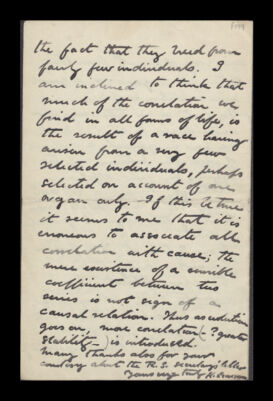 the fact that they breed from
fairly few individuals. I
am inclined to think that
much of the correlation we
find in all forms of life, is
the result of a race having
arisen from a very few
selected individuals, perhaps
selected on account of one
organ only. If this be true
it seems to me that it is
erroneous to associate all
correlation with cause; the
mere existence of a sensible
coefficient between two
series is not sign of a
causal relation. Thus as evolution
goes on, more correlation (? greater
stability) is introduced.
Many thanks also for your
courtesy about the R.S. secretary's letter
Yours very truly K. Pearson